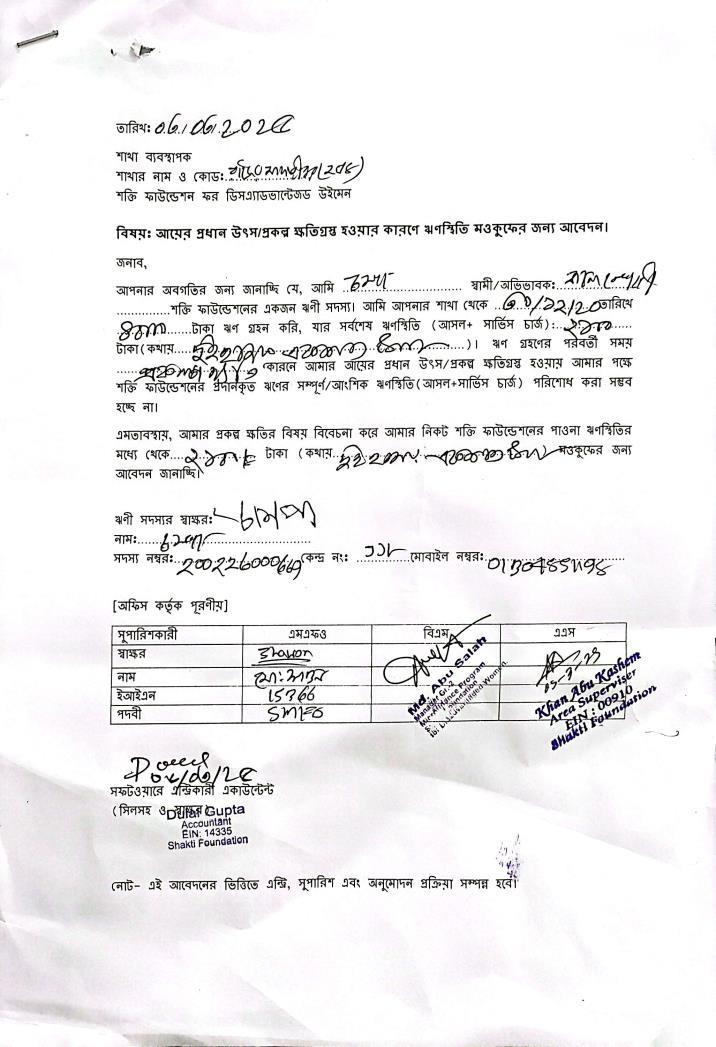 তারিখ: ০৬/০৬/২০২৫
শাখা ব্যবস্থাপক
শাখার নাম ও কোড:
শক্তি ফাউন্ডেশন ফর ডিসএ্যাডভান্টেজড উইমেন
বিষয়: আয়ের প্রধান উৎস/প্রকল্প ক্ষতিগ্রস্ত হওয়ার কারণে ঋণস্থিতি মওকুফের জন্য আবেদন।
জনাব,
আপনার অবগতির জন্য জানাচ্ছি যে, আমি চম্পা স্বামী/অভিভাবক:
শক্তি ফাউন্ডেশনের একজন ঋণী সদস্য। আমি আপনার শাখা থেকে তারিখে
টাকা ঋণ গ্রহন করি, যার সর্বশেষ ঋণস্থিতি (আসল+ সার্ভিস চার্জ): ২১০০
টাকা(কথায় দুইহাজার একশত টাকা)। ঋণ গ্রহণের পরবর্তী সময়
কারনে আমার আয়ের প্রধান উৎস/প্রকল্প ক্ষতিগ্রস্ত হওয়ায় আমার পক্ষে
শক্তি ফাউন্ডেশনের প্রদানকৃত ঋণের সম্পূর্ণ/আংশিক ঋণস্থিতি(আসল+সার্ভিস চার্জ) পরিশোধ করা সম্ভব
হচ্ছে না।
এমতাবস্থায়, আমার প্রকল্প ক্ষতির বিষয় বিবেচনা করে আমার নিকট শক্তি ফাউন্ডেশনের পাওনা ঋণস্থিতির
মধ্যে থেকে ২১০০/= টাকা (কথায় দুইহাজার একশত টাকা মওকুফের জন্য
আবেদন জানাচ্ছি।
ঋণী সদস্যর স্বাক্ষর: চম্পা
নাম: চম্পা
সদস্য নম্বর: কেন্দ্র নং: মোবাইল নম্বর:
[অফিস কর্তৃক পূরণীয়]
সুপারিশকারী এমএফও বিএম এএস
স্বাক্ষর Shavon
নাম
ইআইএন 15366
পদবী
Md. Abu Salah
Manager Gr-2
Microfinance Program
Khan Abu Kashem
Area Superviser
EIN : 00910
Shakti Foundation
সফটওয়ারে এন্ট্রিকারী একাউন্টেন্ট
(সিলসহ ও স্বাক্ষর)
Dulal Gupta
Accountant
EIN: 14335
Shakti Foundation
নোট- এই আবেদনের ভিত্তিতে এন্ট্রি, সুপারিশ এবং অনুমোদন প্রক্রিয়া সম্পন্ন হবে।